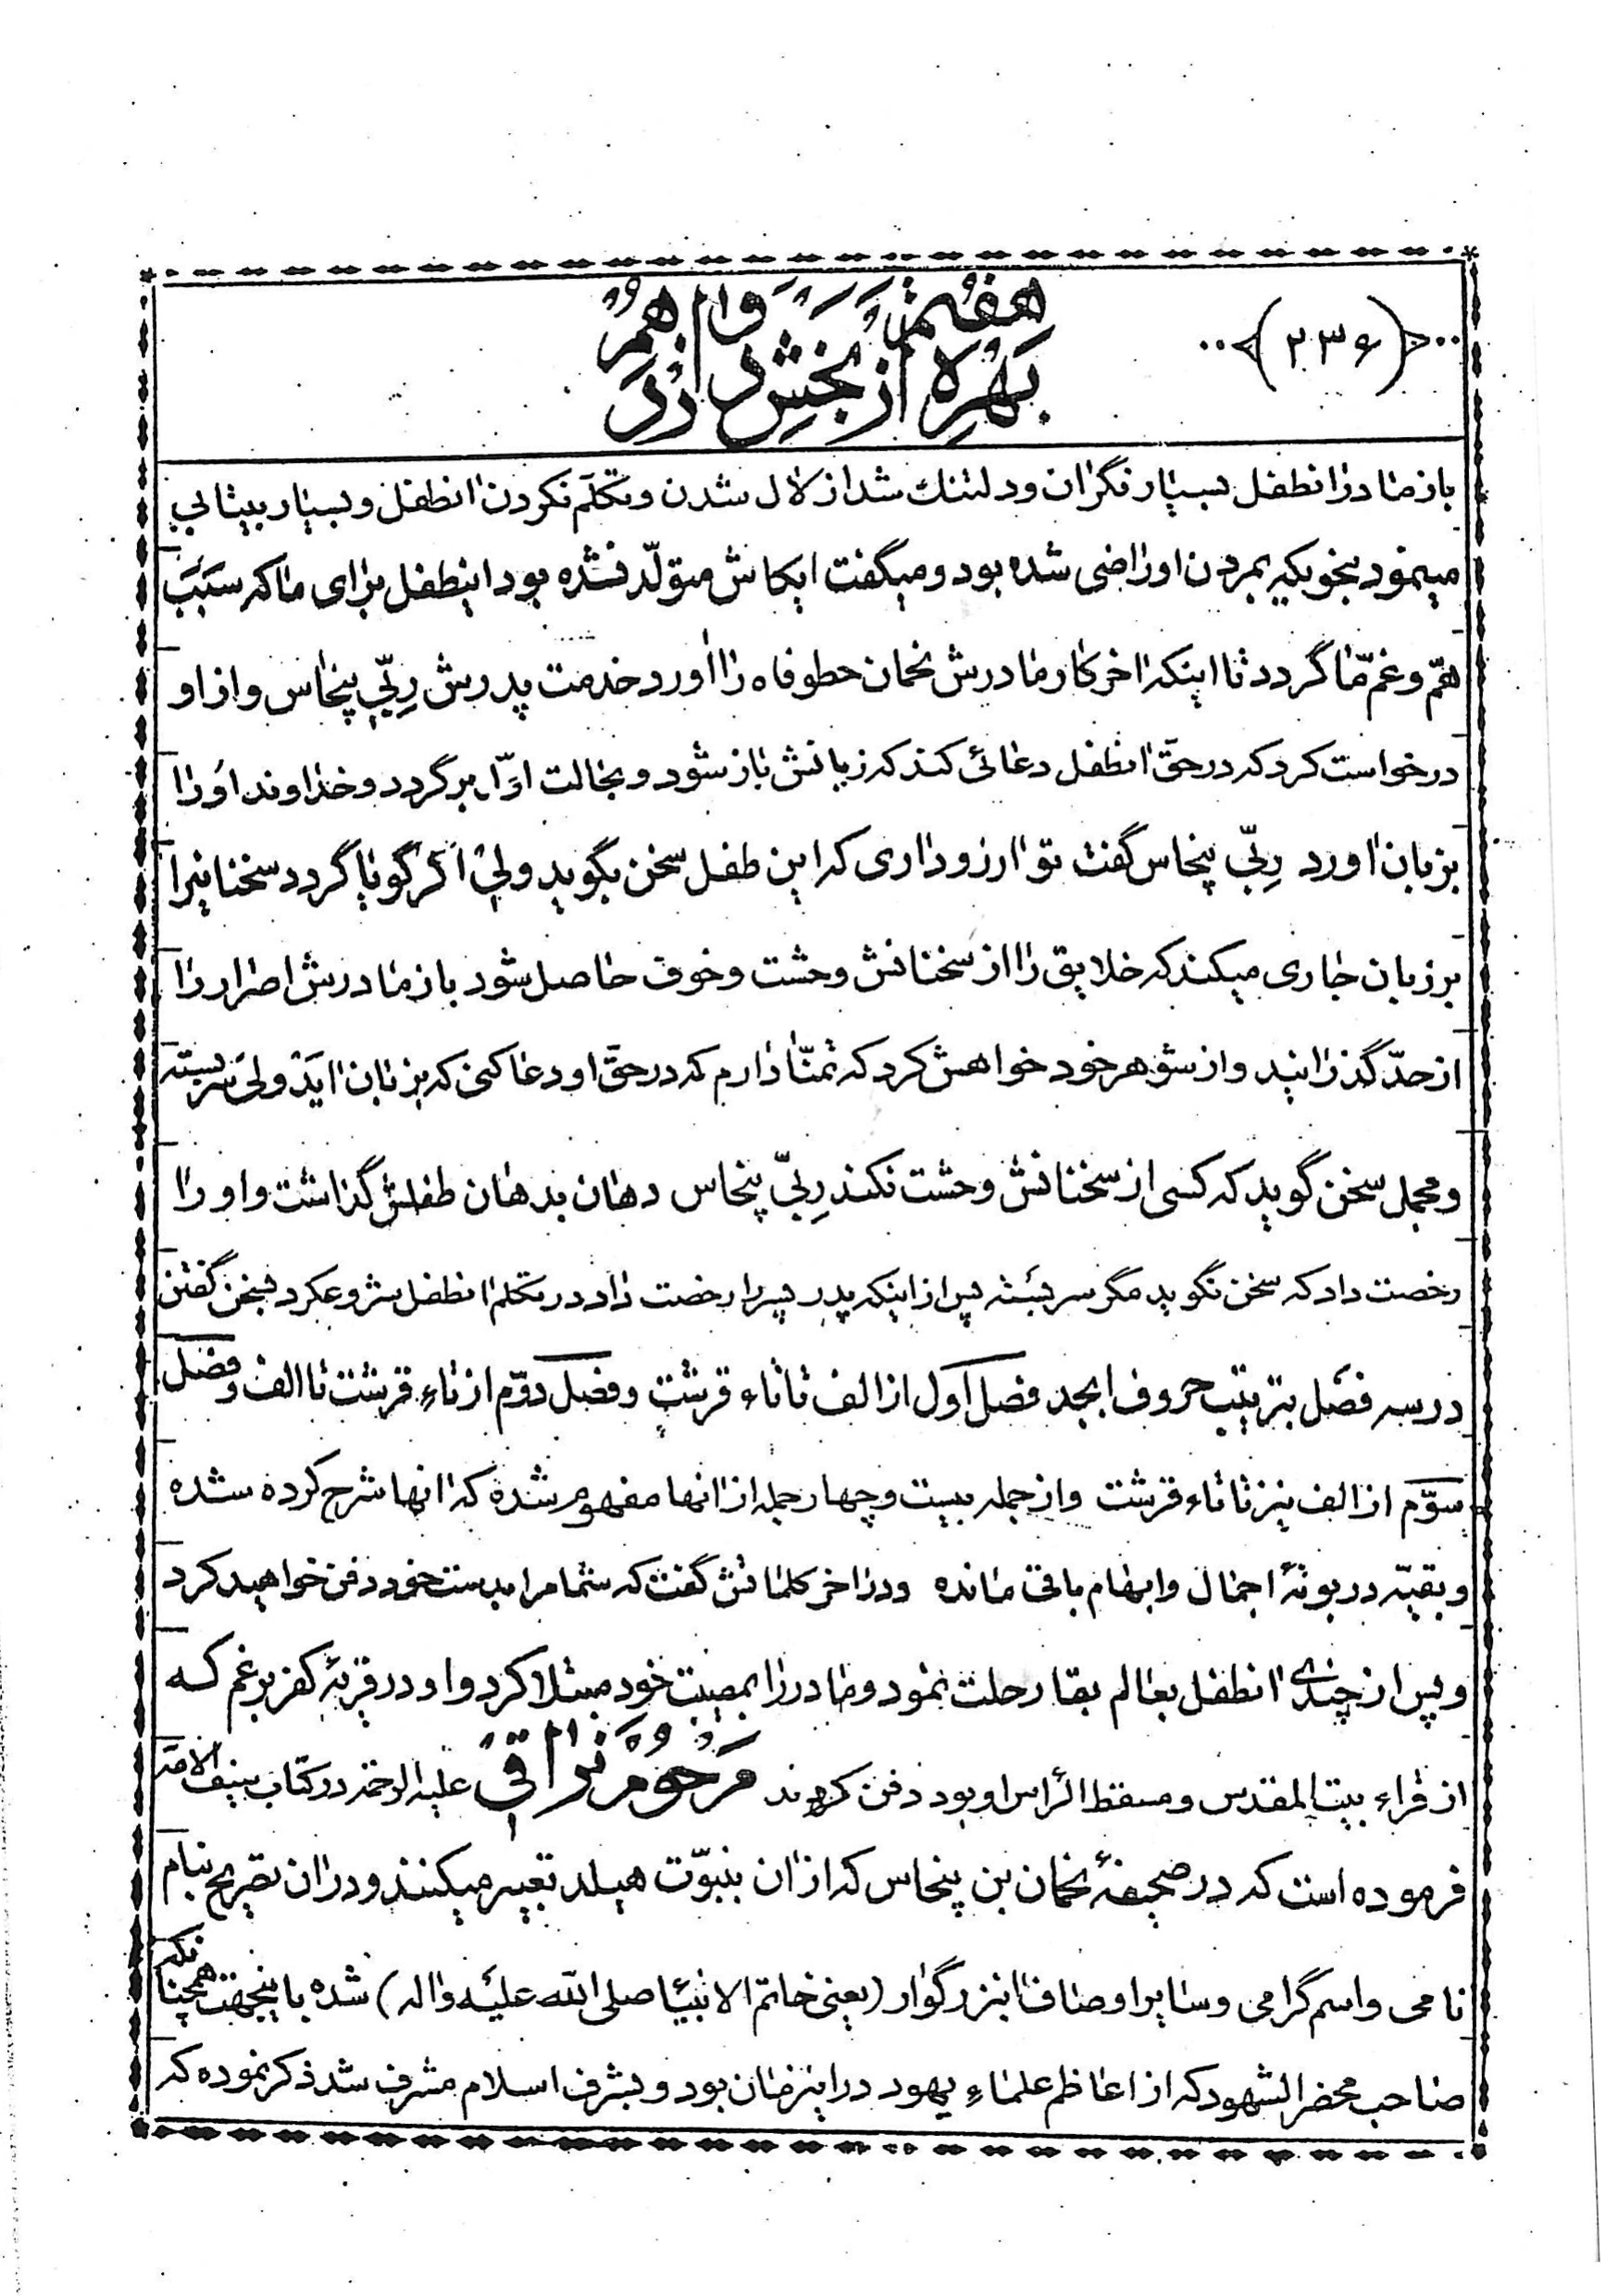 (۲۳۶)
بهره هفتم از بخش دوازدهم
باز مادر انطفل بسیار نگران و دلتنك شد از لال شدن و تکلّم نکردن انطفل و بسیار بیتابی
مینمود بنحویکه بمردن او راضی شده بود و میگفت ایکاش متولّد نشده بود اینطفل برای ما که سبب
همّ و غمّ ما گردد تا اینکه اخر کار مادرش نحمان حطوفاه را اورد خدمت پدرش ربّی پنحاس و از او
درخواست کرد که در حقّ انطفل دعائی کند که زبانش باز شود و بحالت اوّل برگردد و خداوند او را
بزبان اورد ربّی پنحاس گفت تو ارزو داری که این طفل سخن بگوید ولی اگر گویا گردد سخنانیرا
بر زبان جاری میکند که خلایق را از سخنانش وحشت و خوف حاصل شود باز مادرش اصرار را
از حدّ گذرانید و از شوهر خود خواهش کرد که تمنّا دارم که در حقّ او دعا کنی که بزبان اید ولی سربسته
و مجمل سخن گوید که کسی از سخنانش وحشت نکند ربّی پنحاس دهان بدهان طفلش گذاشت و او را
رخصت داد که سخن نگوید مگر سربسته پس از اینکه پدر پسر را رخصت داد در تکلم انطفل شروع کرد بسخن گفتن
در سه فصل بترتیب حروف ابجد فصل اول از الف تا تاء قرشت و فصل دوّم از تاء قرشت تا الف و فصل
سوّم از الف نیز تا تاء قرشت و از جمله بیست و چهار جمله از انها مفهوم شده که انها شرح کرده شده
و بقیّه در بوتهٔ اجمال و ابهام باقی مانده و در اخر کلماتش گفت که شما مرا بدست خود دفن خواهید کرد
و پس از چندی انطفل بعالم بقا رحلت نمود و مادر را بمصیبت خود مبتلا کرد و او در قریهٔ کفر برغم که
از قراء بیت المقدس و مسقط الرأس او بود دفن کردند مرحوم نراقی علیه الرحمة در کتاب سیف الامة
فرموده است که در صحیفهٔ نحمان بن پنحاس که از ان بنبوّت هیلد تعبیر میکنند و در ان تصریح بنام
نامی و اسم گرامی و سایر اوصاف انبزرگوار (یعنی خاتم الانبیا صلی الله علیه واله) شده باینجهت همچنانکه
صاحب محضر الشهود که از اعاظم علماء یهود در اینزمان بود و بشرف اسلام مشرف شد ذکر نموده که